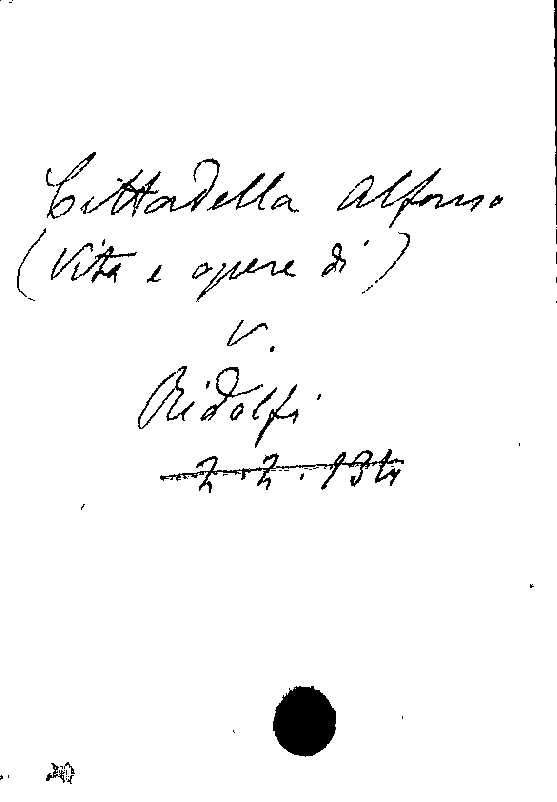 Cittadella Alfonso
(Vita e opere di)
v.
Ridolfi